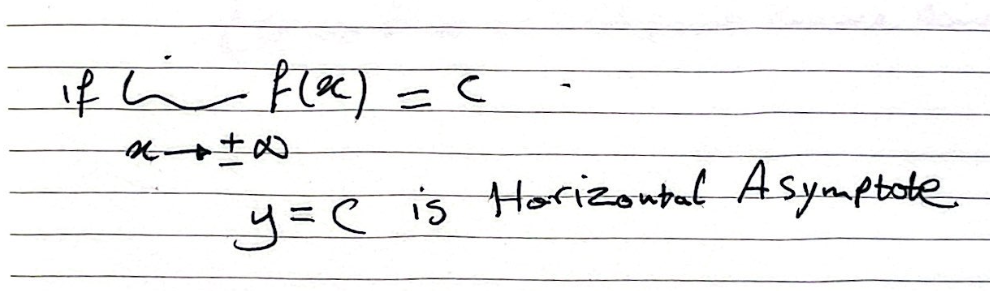 if lim f(x) = c
x → ± ∞
y = c is Horizontal Asymptote